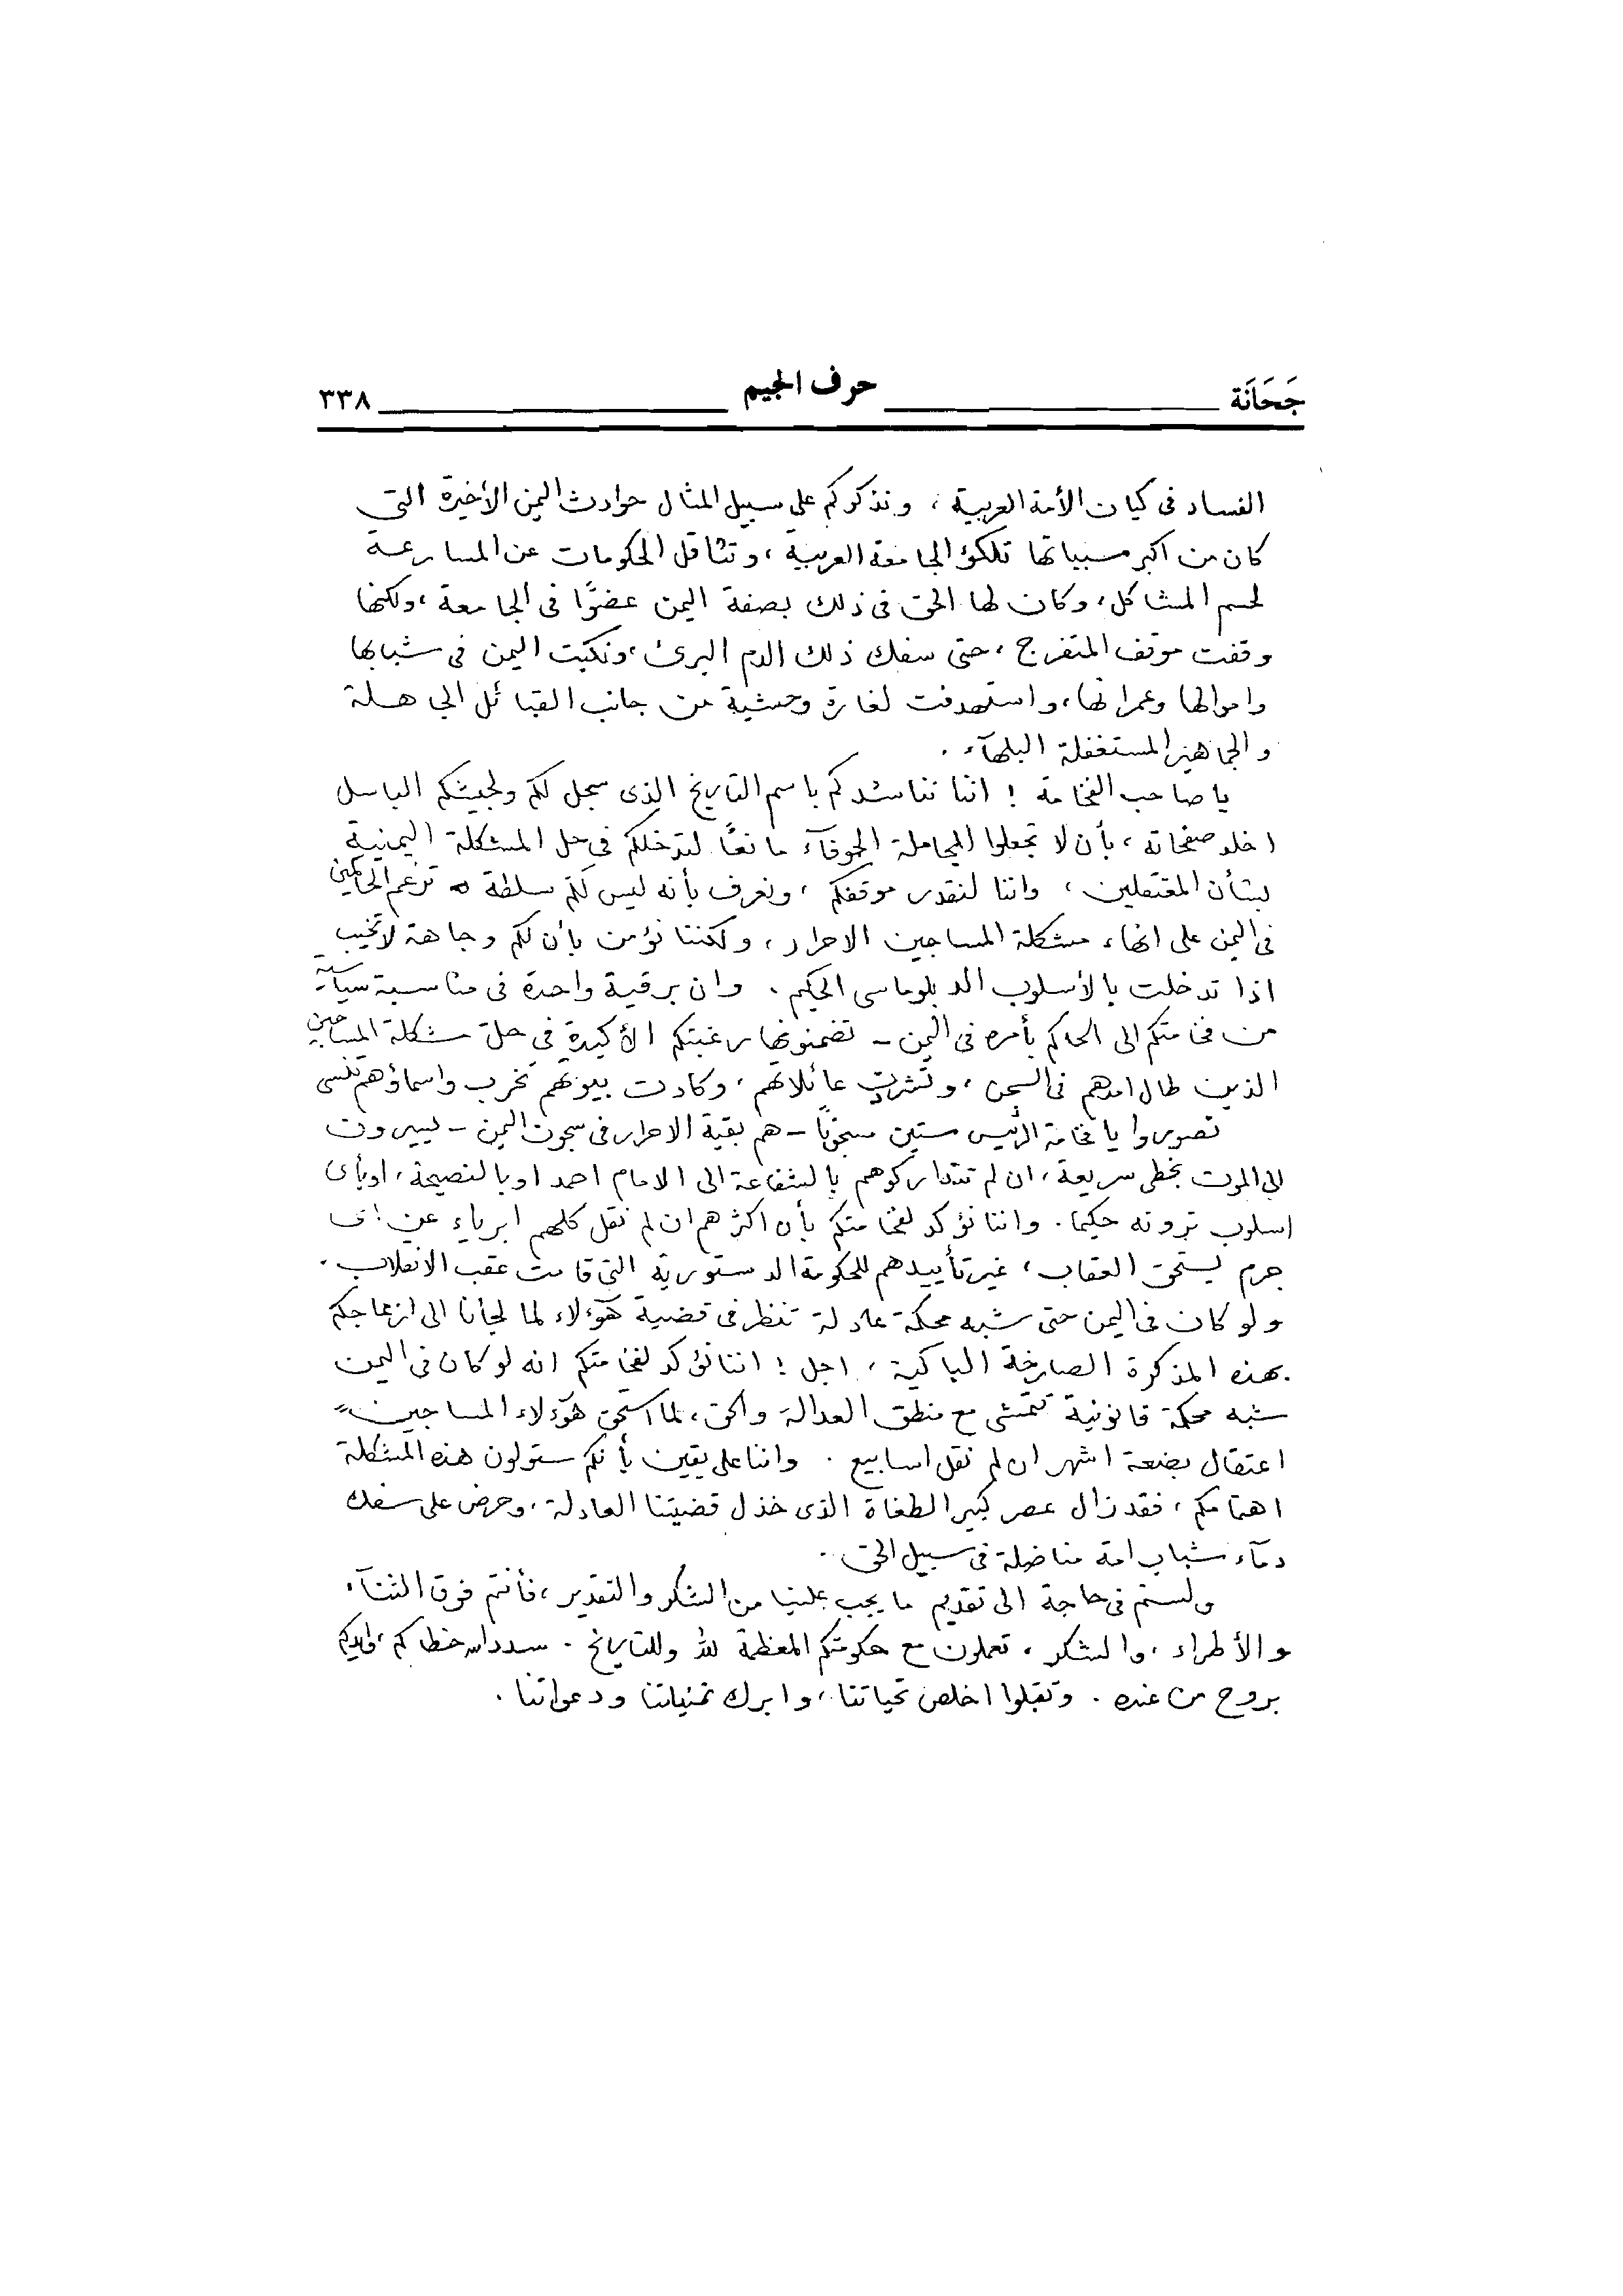 جَحَانَة حرف الجيم ٣٣٨
الفساد فى كيان الأمة العربية ، ونذكركم على سبيل المثال حوادث اليمن الأخيرة التى
كان من اكبر مسبباتها تلكؤ الجامعة العربية ، وتثاقل الحكومات عن المسارعة
لحسم المشاكل ، وكان لها الحق فى ذلك بصفة اليمن عضوًا فى الجامعة ، ولكنها
وقفت موقف المتفرج ، حتى سفك ذلك الدم البرئ ، ونكبت اليمن فى شبابها
واموالها وعمرانها ، واستهدفت لغارة وحشية من جانب القبائل الجاهلة
والجماهير المستغفلة البلهآء .
يا صاحب الفخامة ! اننا نناشدكم باسم التاريخ الذى سجل لكم ولجيشكم الباسل
اخلد صفحاته ، بأن لا تجعلوا المجاملة الجوفآء مانعًا لتدخلكم فى حل المشكلة اليمنية
بشأن المعتقلين ، واننا لنقدر موقفكم ، ونعرف بأنه ليس لكم سلطة ترغم الحاكمين
فى اليمن على انهاء مشكلة المساجين الاحرار ، ولكننا نؤمن بأن لكم وجاهة لا تخيب
اذا تدخلت بالأسلوب الدبلوماسى الحكيم . وان برقية واحدة فى مناسبة سياسية
من فخامتكم الى الحاكم بأمره فى اليمن - تضمنونها رغبتكم الأكيدة فى حل مشكلة المساجين
الذين طال امدهم فى السجن ، وتشردت عائلاتهم ، وكادت بيوتهم تخرب واسماؤهم تنسى
تصوروا يا فخامة الرئيس ستين سجينًا - هم بقية الاحرار فى سجون اليمن - يسيرون
الى الموت بخطى سريعة ، ان لم تتداركوهم بالشفاعة الى الامام احمد او بالنصيحة ، او بأى
اسلوب ترونه حكيما . واننا نؤكد لفخامتكم بأن اكثرهم ان لم نقل كلهم ابرياء عن اى
جرم يستحق العقاب ، غير تأييدهم للحكومة الدستورية التى قامت عقب الانقلاب .
ولو كان فى اليمن حتى شبه محكمة عادلة تنظر فى قضية هؤلاء لما لجأنا الى ازعاجكم
بهذه المذكرة الصارخة الباكية ، اجل ! اننا نؤكد لفخامتكم انه لو كان فى اليمن
شبه محكمة قانونية تتمشى مع منطق العدالة والحق ، لما استحق هؤلاء المساجين
اعتقال بضعة اشهر ان لم نقل اسابيع . واننا على يقين بأنكم ستولون هذه المشكلة
اهتمامكم ، فقد زال عصر كبير الطغاة الذى خذل قضيتنا العادلة ، وحرض على سفك
دمآء شباب امة مناضلة فى سبيل الحق .
ولستم فى حاجة الى تقديم ما يجب علينا من الشكر والتقدير ، فأنتم فوق الثنآء
والأطراء ، والشكر ، تعملون مع حكومتكم المعظمة لله وللتاريخ . سدد الله خطاكم ، وايدكم
بروح من عنده . وتقبلوا اخلص تحياتنا ، وابرك تمنياتنا ودعواتنا .